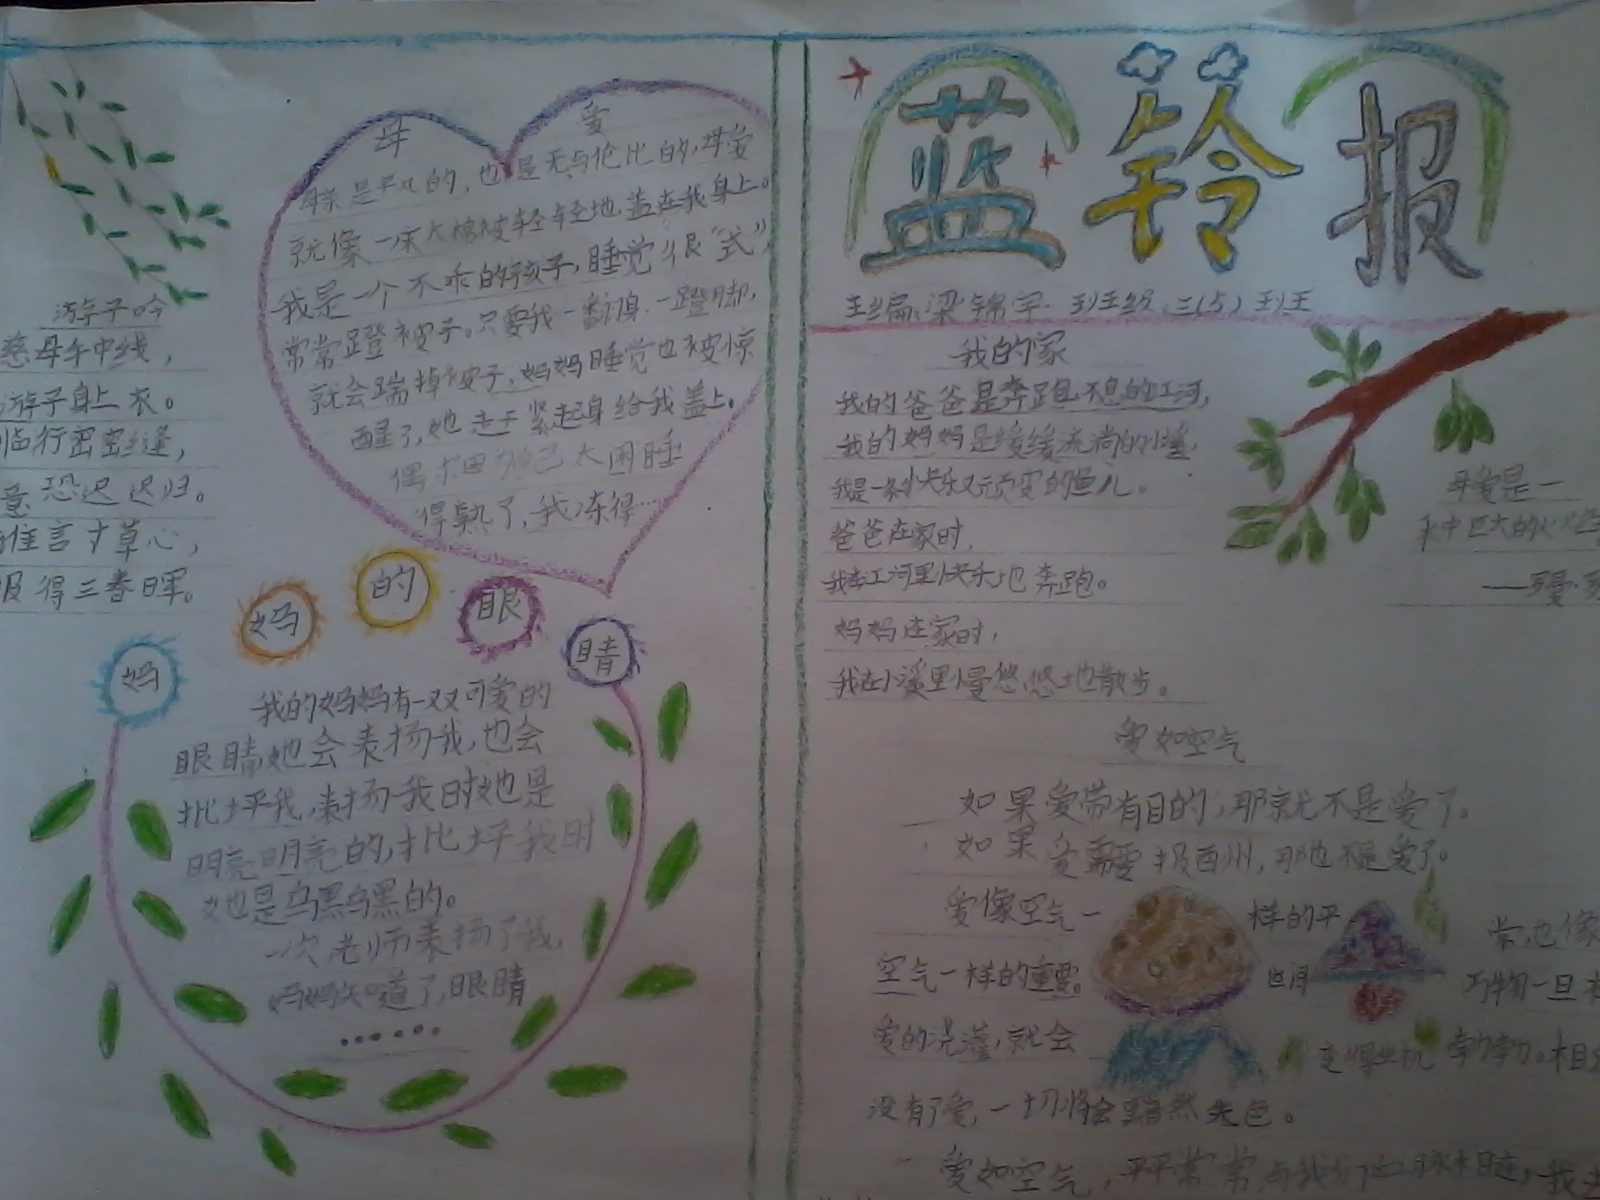 蓝铃报
主编:梁锦宇 班级:三(5)班
游子吟
慈母手中线,
游子身上衣。
临行密密缝,
意恐迟迟归。
谁言寸草心,
报得三春晖。
母爱
母亲是平凡的,也是无与伦比的,母爱
就像一床大棉被轻轻地盖在我身上。
我是一个不乖的孩子,睡觉很“武”,
常常蹬被子。只要我一翻身,一蹬脚,
就会踹掉被子,妈妈睡觉也被惊
醒了,她赶紧起身给我盖上。
偶尔因为自己太困睡
得熟了,我冻得…
妈妈的眼睛
我的妈妈有一双可爱的
眼睛她会表扬我,也会
批评我,表扬我时她是
明亮明亮的,批评我时
她也是乌黑乌黑的。
一次老师表扬了我,
妈妈知道了,眼睛
……
我的家
我的爸爸是奔跑不息的江河,
我的妈妈是缓缓流淌的小溪,
我是一条快乐又顽皮的鱼儿。
爸爸在家时,
我在江河里快乐地奔跑。
妈妈在家时,
我在小溪里慢悠悠地散步。
母爱是一
中巨大的火
爱如空气
如果爱带有目的,那就不是爱了。
如果爱需要报酬,那也不是爱了。
爱像空气一样的平常,也像
空气一样的重要。
万物一旦
爱的浇灌,就会
相
没有了爱,一切将会黯然失色。
爱如空气,平平常常,与我们